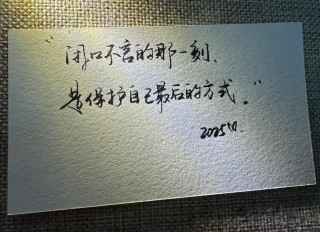 “闭口不言的那一刻、
是保护自己最后的方式。”